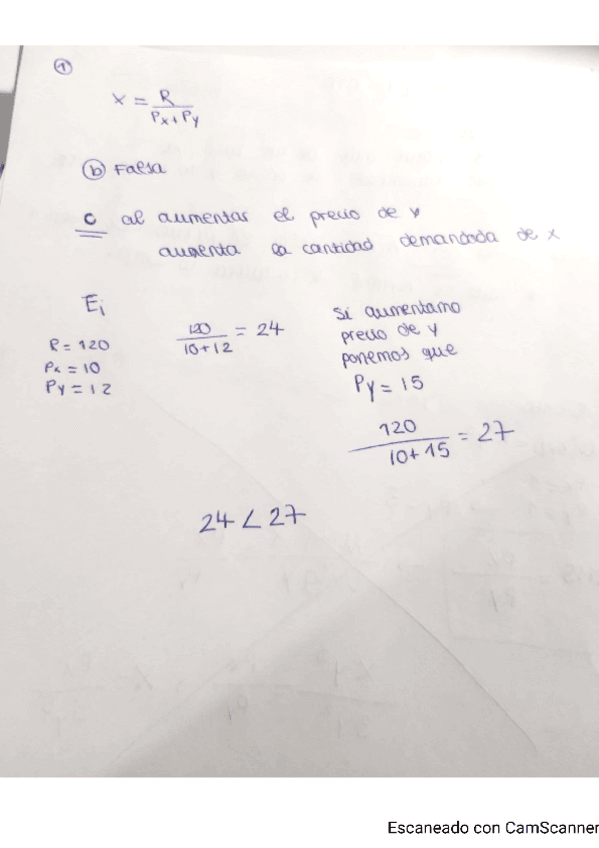 1
x = R / Px + Py
b Falsa
c al aumentar el precio de y
aumenta la cantidad demandada de x
Ej
R = 120
Px = 10
Py = 12
120 / 10+12 = 24
Si aumentamo
precio de y
ponemos que
Py = 15
120 / 10+15 = 27
24 < 27
Escaneado con CamScanner